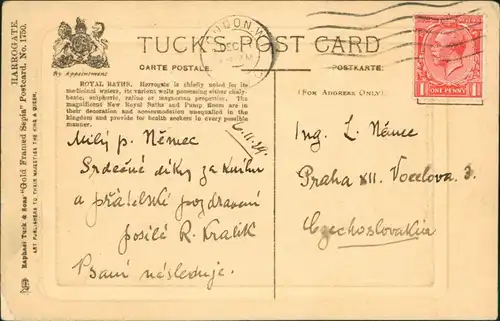 HARROGATE.
Raphael Tuck & Sons "Gold Framed Sepia" Postcard, No. 1750.
ART PUBLISHERS TO THEIR MAJESTIES THE KING & QUEEN.
By Appointment
TUCK'S POST CARD
CARTE POSTALE.
POSTKARTE.
(FOR ADDRESS ONLY)
ROYAL BATHS. Harrogate is chiefly noted for its
medicinal waters, its various wells possessing either chaly-
beate, sulphuric, saline or magnesian properties. The
magnificent New Royal Baths and Pump Room are in
their decoration and accommodation unequalled in the
kingdom and provide for health seekers in every possible
manner.
LONDON W.
DEC
ONE PENNY
Milý p. Němec
Srdečné díky za knihu
a přátelské pozdravení
posílá R. Kralik
Psaní následuje.
Ing. L. Němec
Praha XII. Vocelova 3.
Czechoslovakia